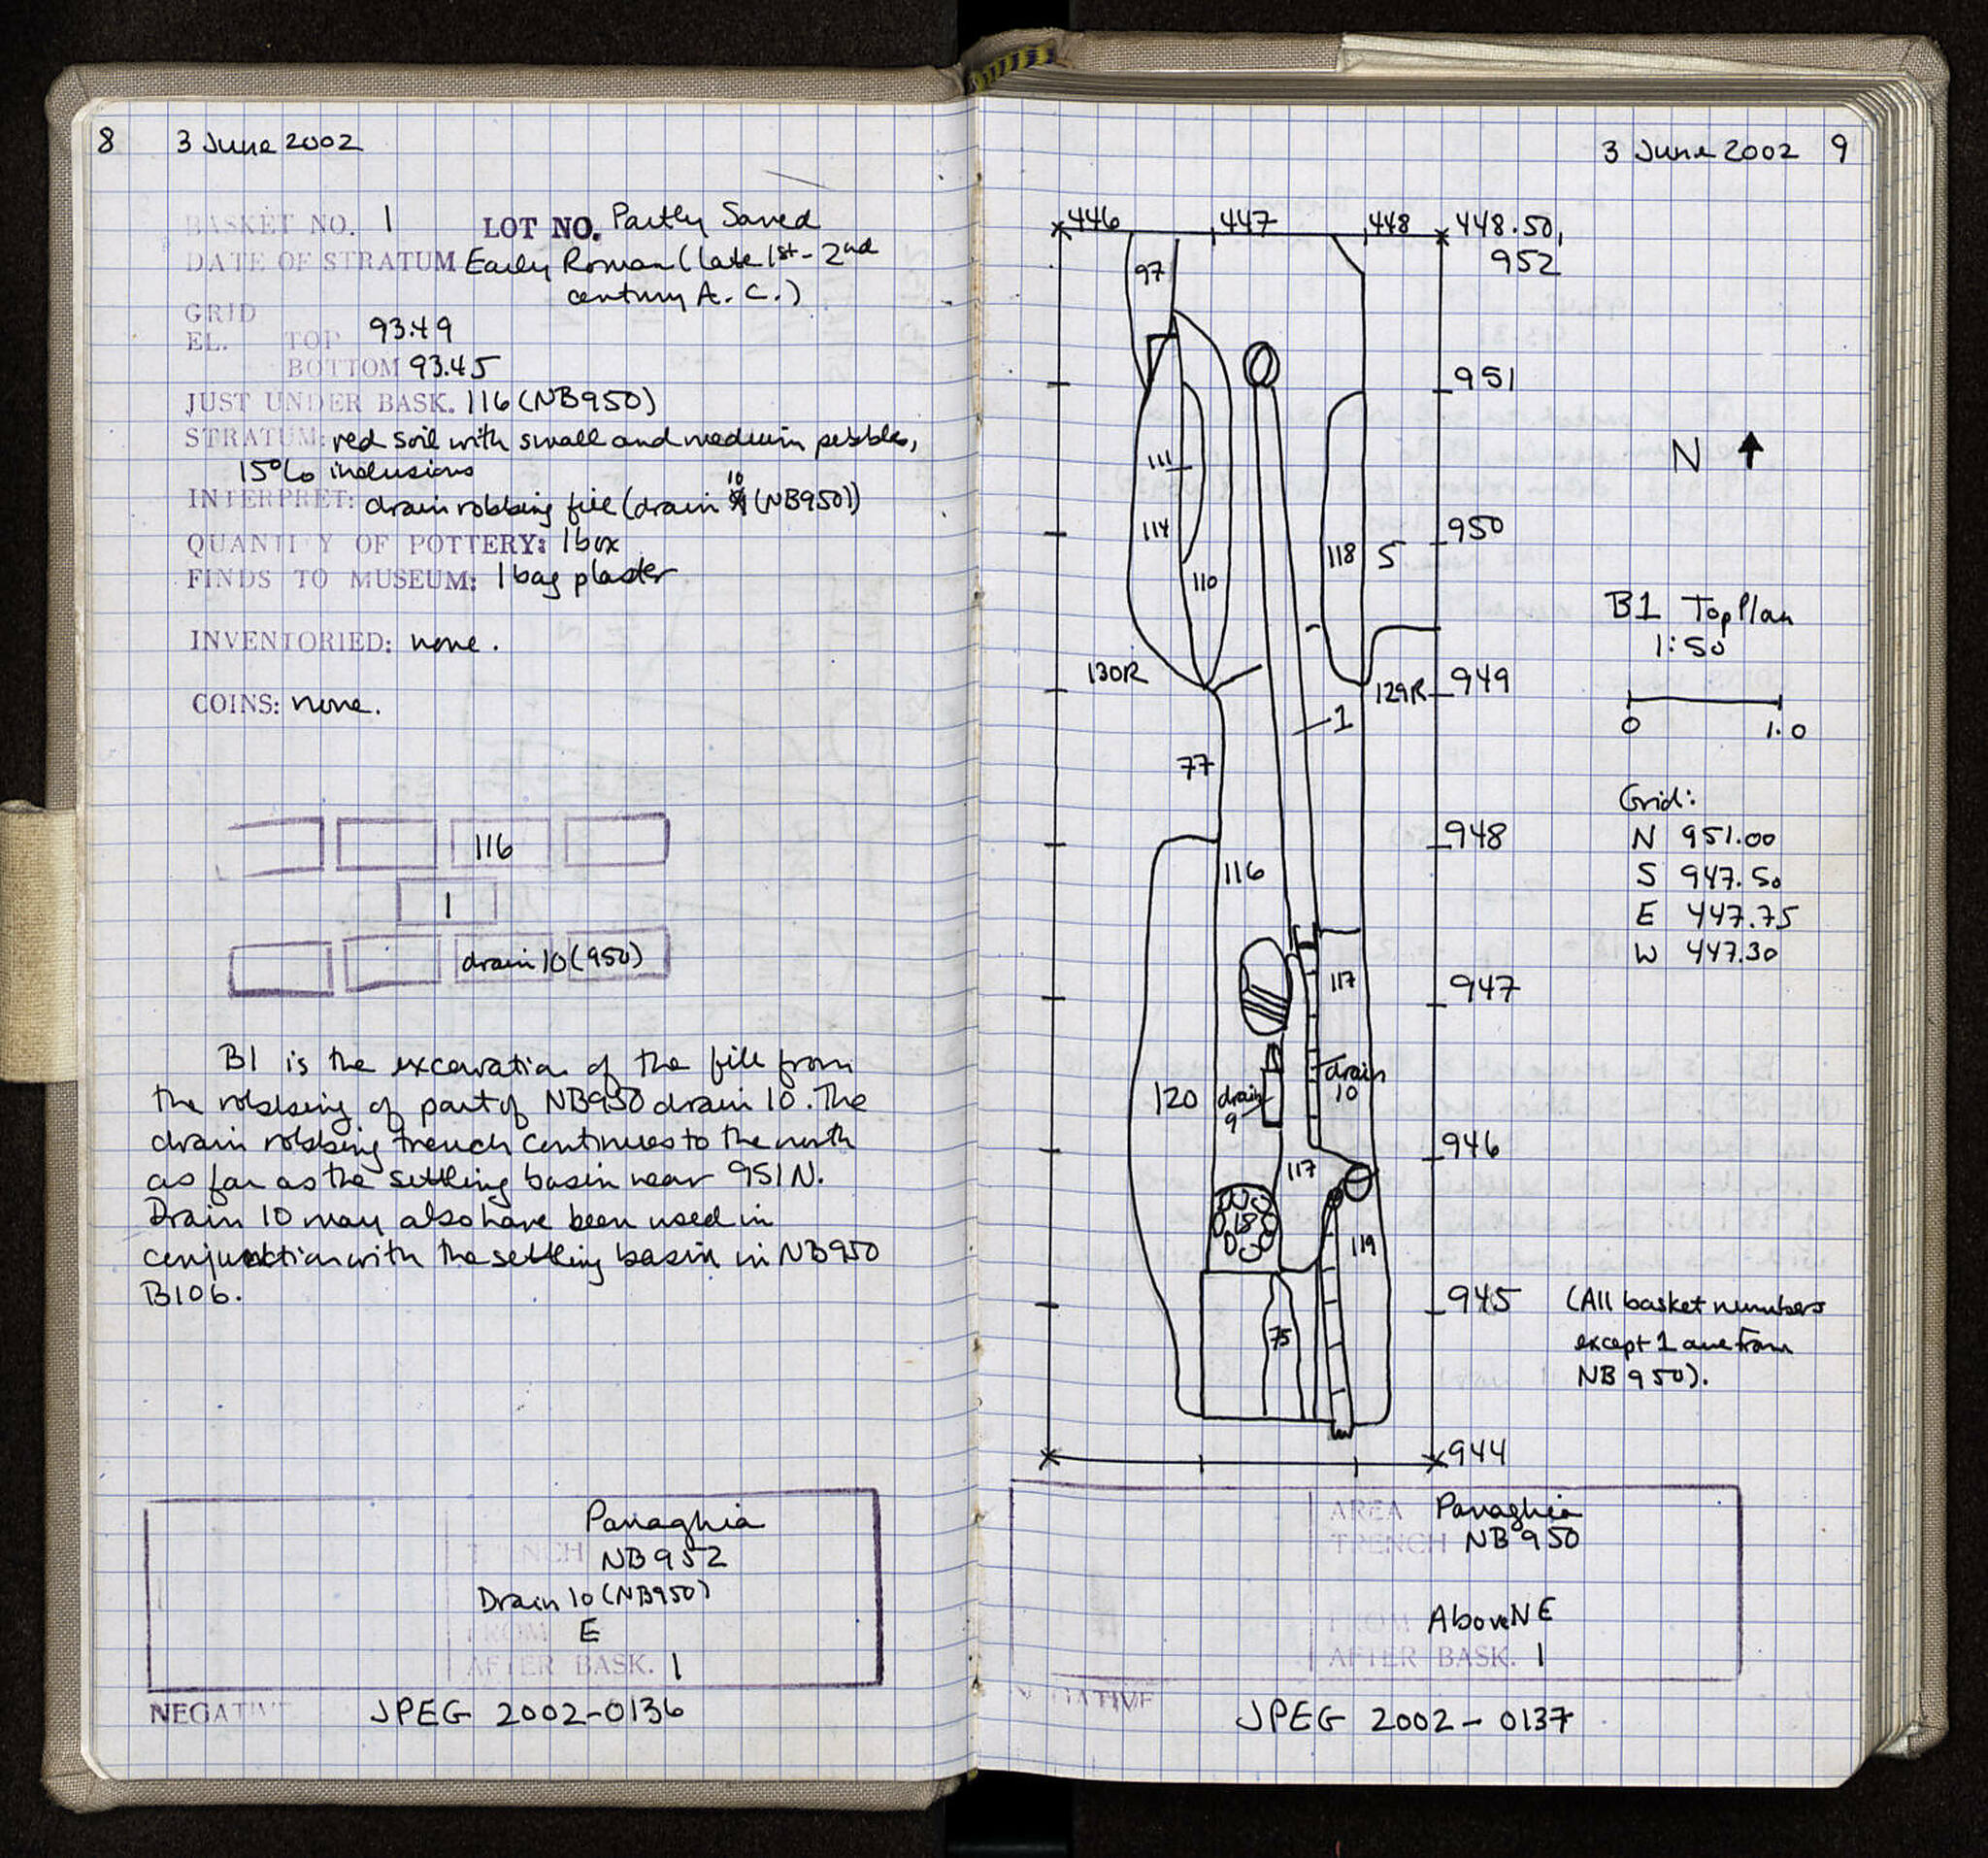 8 3 June 2002
BASKET NO. 1 LOT NO. Partly Saved
DATE OF STRATUM Early Roman (late 1st - 2nd
century A.C.)
GRID
EL. TOP 93.49
BOTTOM 93.45
JUST UNDER BASK. 116 (NB950)
STRATUM: red soil with small and medium pebbles,
15% inclusions
INTERPRET: drain robbing fill (drain 10 (NB950))
QUANTITY OF POTTERY: 1 box
FINDS TO MUSEUM: 1 bag plaster
INVENTORIED: none.
COINS: none.
116
1
drain 10 (950)
B1 is the excavation of the fill from
the robbing of part of NB950 drain 10. The
drain robbing trench continues to the north
as far as the settling basin near 951 N.
Drain 10 may also have been used in
conjunction with the settling basin in NB950
B106.
Panaghia
TRENCH NB952
Drain 10 (NB950)
FROM E
AFTER BASK. 1
NEGATIVE JPEG 2002-0136
3 June 2002 9
446 447 448 448.50,
952
97
951
N
111
114
110
118 5
950
B1 Top Plan
1:50
130R
129R
949
0 1.0
1
77
Grid:
N 951.00
S 947.50
E 447.75
W 447.30
948
116
117
947
drain
10
120
drain
9
946
117
18
119
945
75
(All basket numbers
except 1 are from
NB950).
944
AREA Panaghia
TRENCH NB950
FROM Above NE
AFTER BASK. 1
NEGATIVE JPEG 2002-0137